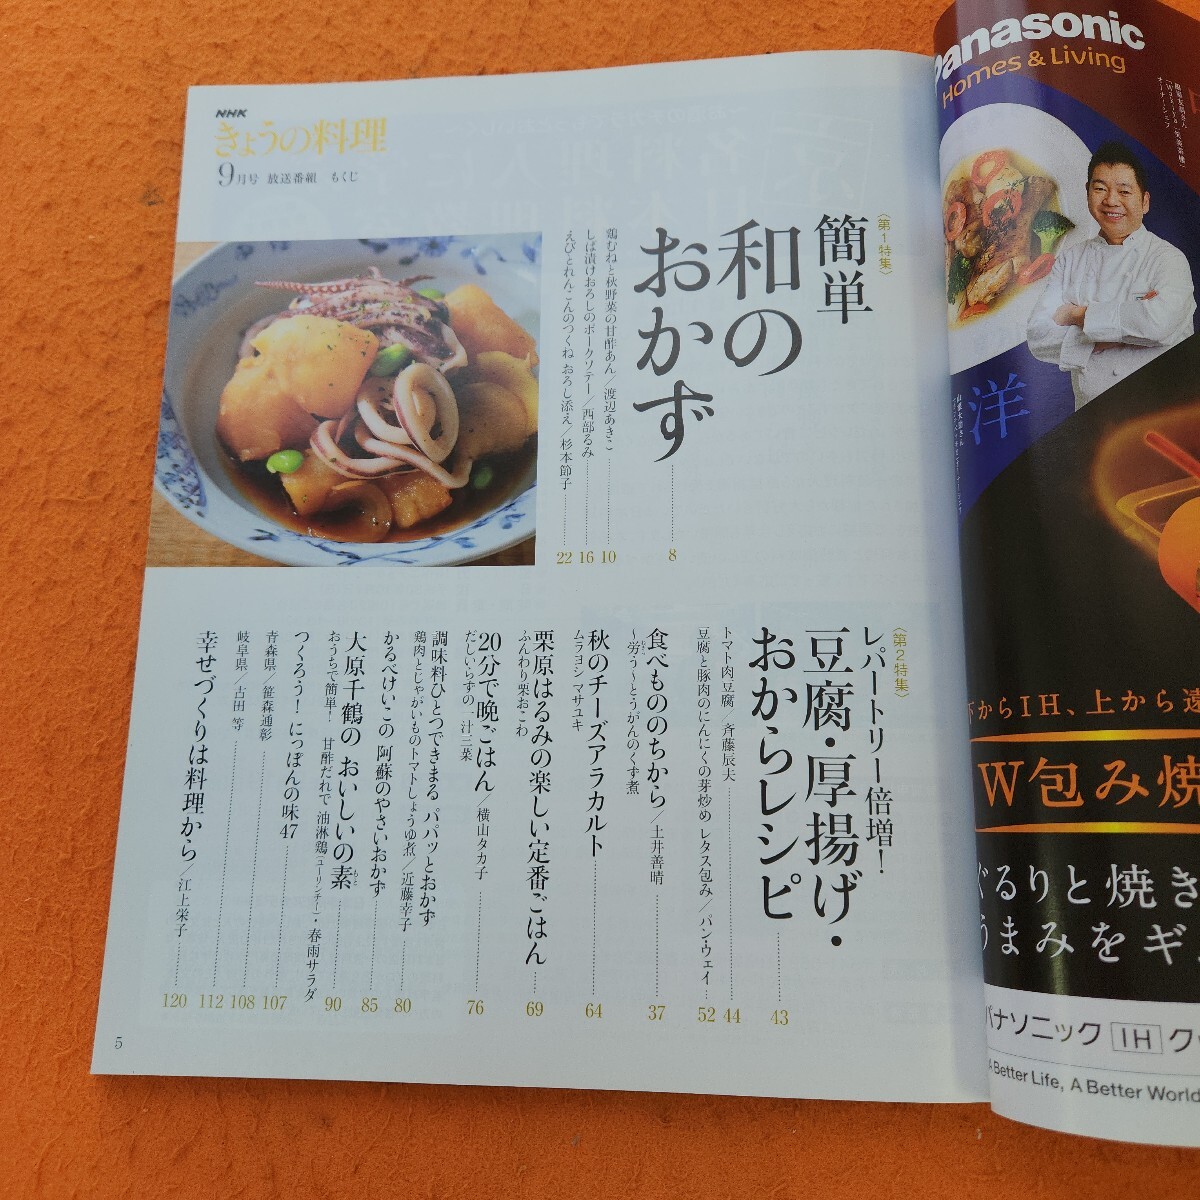 NHK
きょうの料理
9月号 放送番組 もくじ
〈第1特集〉
簡単
和の
おかず
8
鶏むねと秋野菜の甘酢あん／渡辺あきこ
10
しば漬けおろしのポークソテー／西部るみ
16
えびとれんこんのつくね おろし添え／杉本節子
22
〈第2特集〉
レパートリー倍増！
豆腐・厚揚げ・
おからレシピ
43
トマト肉豆腐／斉藤辰夫
44
豆腐と豚肉のにんにくの芽炒め レタス包み／パン・ウェイ
52
食べもののちから／土井善晴
〜労う〜とうがんのくず煮
37
秋のチーズアラカルト
ムラヨシ マサユキ
64
栗原はるみの楽しい定番ごはん
ふんわり栗おこわ
69
20分で晩ごはん／横山タカ子
だしいらずの一汁三菜
76
調味料ひとつできまる パパッとおかず
鶏肉とじゃがいものトマトしょうゆ煮／近藤幸子
80
かるべけいこの 阿蘇のやさいおかず
85
大原千鶴の おいしいの素
もと
おうちで簡単！ 甘酢だれで 油淋鶏（ユーリンチー）・春雨サラダ
90
つくろう！ にっぽんの味47
青森県／笹森通彰
107
岐阜県／古田 等
108
112
幸せづくりは料理から／江上栄子
120
5
Panasonic
Homes & Living
洋
下からIH、上から遠
W包み焼
ぐるりと焼き
うまみをギ
パナソニック IH ク
A Better Life, A Better World